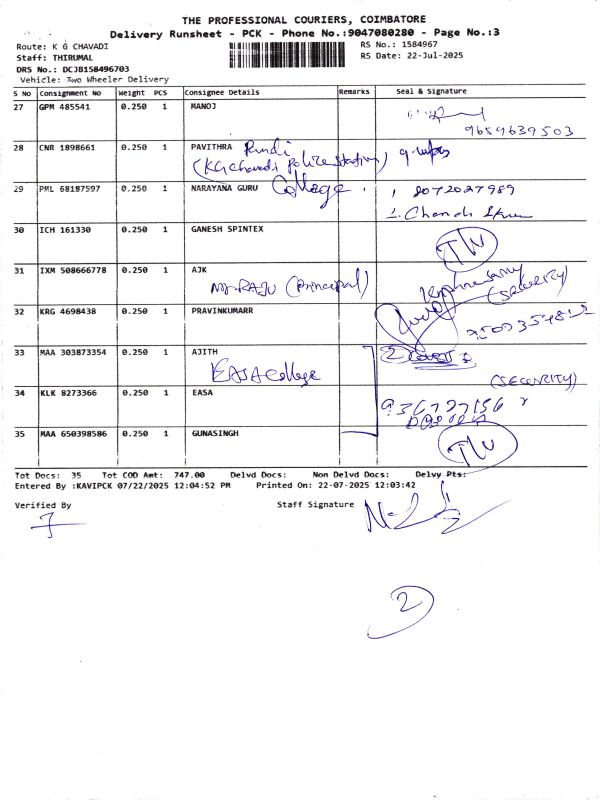 THE PROFESSIONAL COURIERS, COIMBATORE
Delivery Runsheet - PCK - Phone No.:9047080280 - Page No.:3
Route: K G CHAVADI
RS No.: 1584967
Staff: THIRUMAL
RS Date: 22-Jul-2025
DRS No.: DCJB158496703
Vehicle: Two Wheeler Delivery
S No Consignment No Weight PCS Consignee Details Remarks Seal & Signature
27 GPM 485541 0.250 1 MANOJ
9659639503
28 CNR 1898661 0.250 1 PAVITHRA
(KG chavadi police station)
29 PML 68187597 0.250 1 NARAYANA GURU College 8072027989
30 ICH 161330 0.250 1 GANESH SPINTEX
31 IXM 508666778 0.250 1 AJK
Mr. RAJU (Principal) (SECURITY)
32 KRG 4698438 0.250 1 PRAVINKUMARR
33 MAA 303873354 0.250 1 AJITH
EASA College
(SECURITY)
34 KLK 8273366 0.250 1 EASA
35 MAA 650398586 0.250 1 GUNASINGH
Tot Docs: 35 Tot COD Amt: 747.00 Delvd Docs: Non Delvd Docs: Delvy Pts:
Entered By :KAVIPCK 07/22/2025 12:04:52 PM Printed On: 22-07-2025 12:03:42
Verified By Staff Signature
2